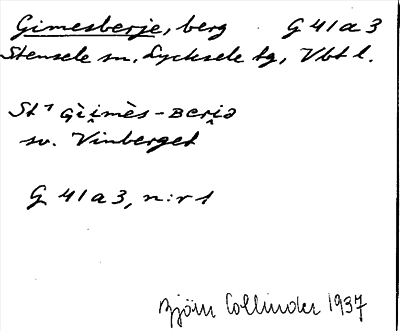 Gimesberje, berg G 41 a 3
Stensele sn, Lycksele tg, Vbt l.
St¹ Gìi̭mès-Beri̭ə
sv. Vinberget
G 41 a 3, n:r 1
Björn Collinder 1937